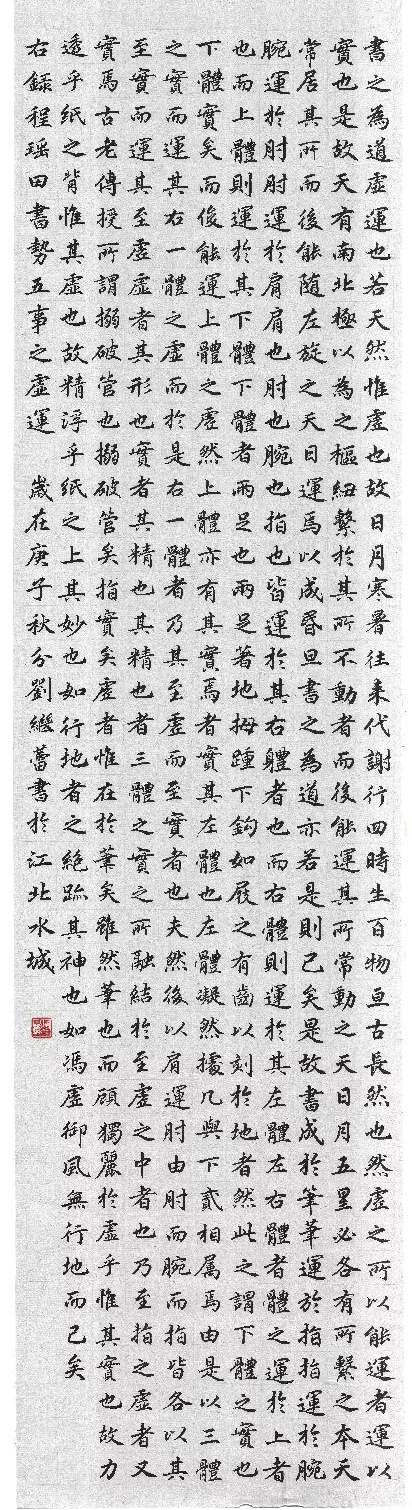 書之為道虛運也若天然惟虛也故日月寒暑往来代謝行四時生百物亘古長然也然虛之所以能運者運以
實也是故天有南北極以為之樞紐繫於其所不動者而後能運其所常動之天日月五星必各有所繫之本天
常居其所而後能隨左旋之天日運焉以成昏旦書之為道亦若是則已矣是故書成於筆筆運於指指運於腕
腕運於肘肘運於肩肩也肘也腕也指也皆運於其右軆者也而右體則運於其左體左右體者體之運於上者
也而上體則運於其下體下體者兩足也兩足著地拇踵下鈎如屐之有齒以刻於地者然此之謂下體之實也
下體實矣而後能運上體之虛然上體亦有其實焉者實其左體也左體凝然據几與下貳相属焉由是以三體
之實而運其右一體之虛而於是右一體者乃其至虛而至實者也夫然後以肩運肘由肘而腕而指皆各以其
至實而運其至虛虛者其形也實者其精也其精也者三體之實之所融結於至虛之中者也乃至指之虛者又
實焉古老傳授所謂搦破管也搦破管矣指實矣虛者惟在於筆矣雖然筆也而顧獨麗於虛乎惟其實也故力
透乎紙之背惟其虛也故精浮乎紙之上其妙也如行地者之絕跡其神也如馮虛御風無行地而已矣
右録程瑶田書勢五事之虛運 歲在庚子秋分劉繼蕾書於江北水城